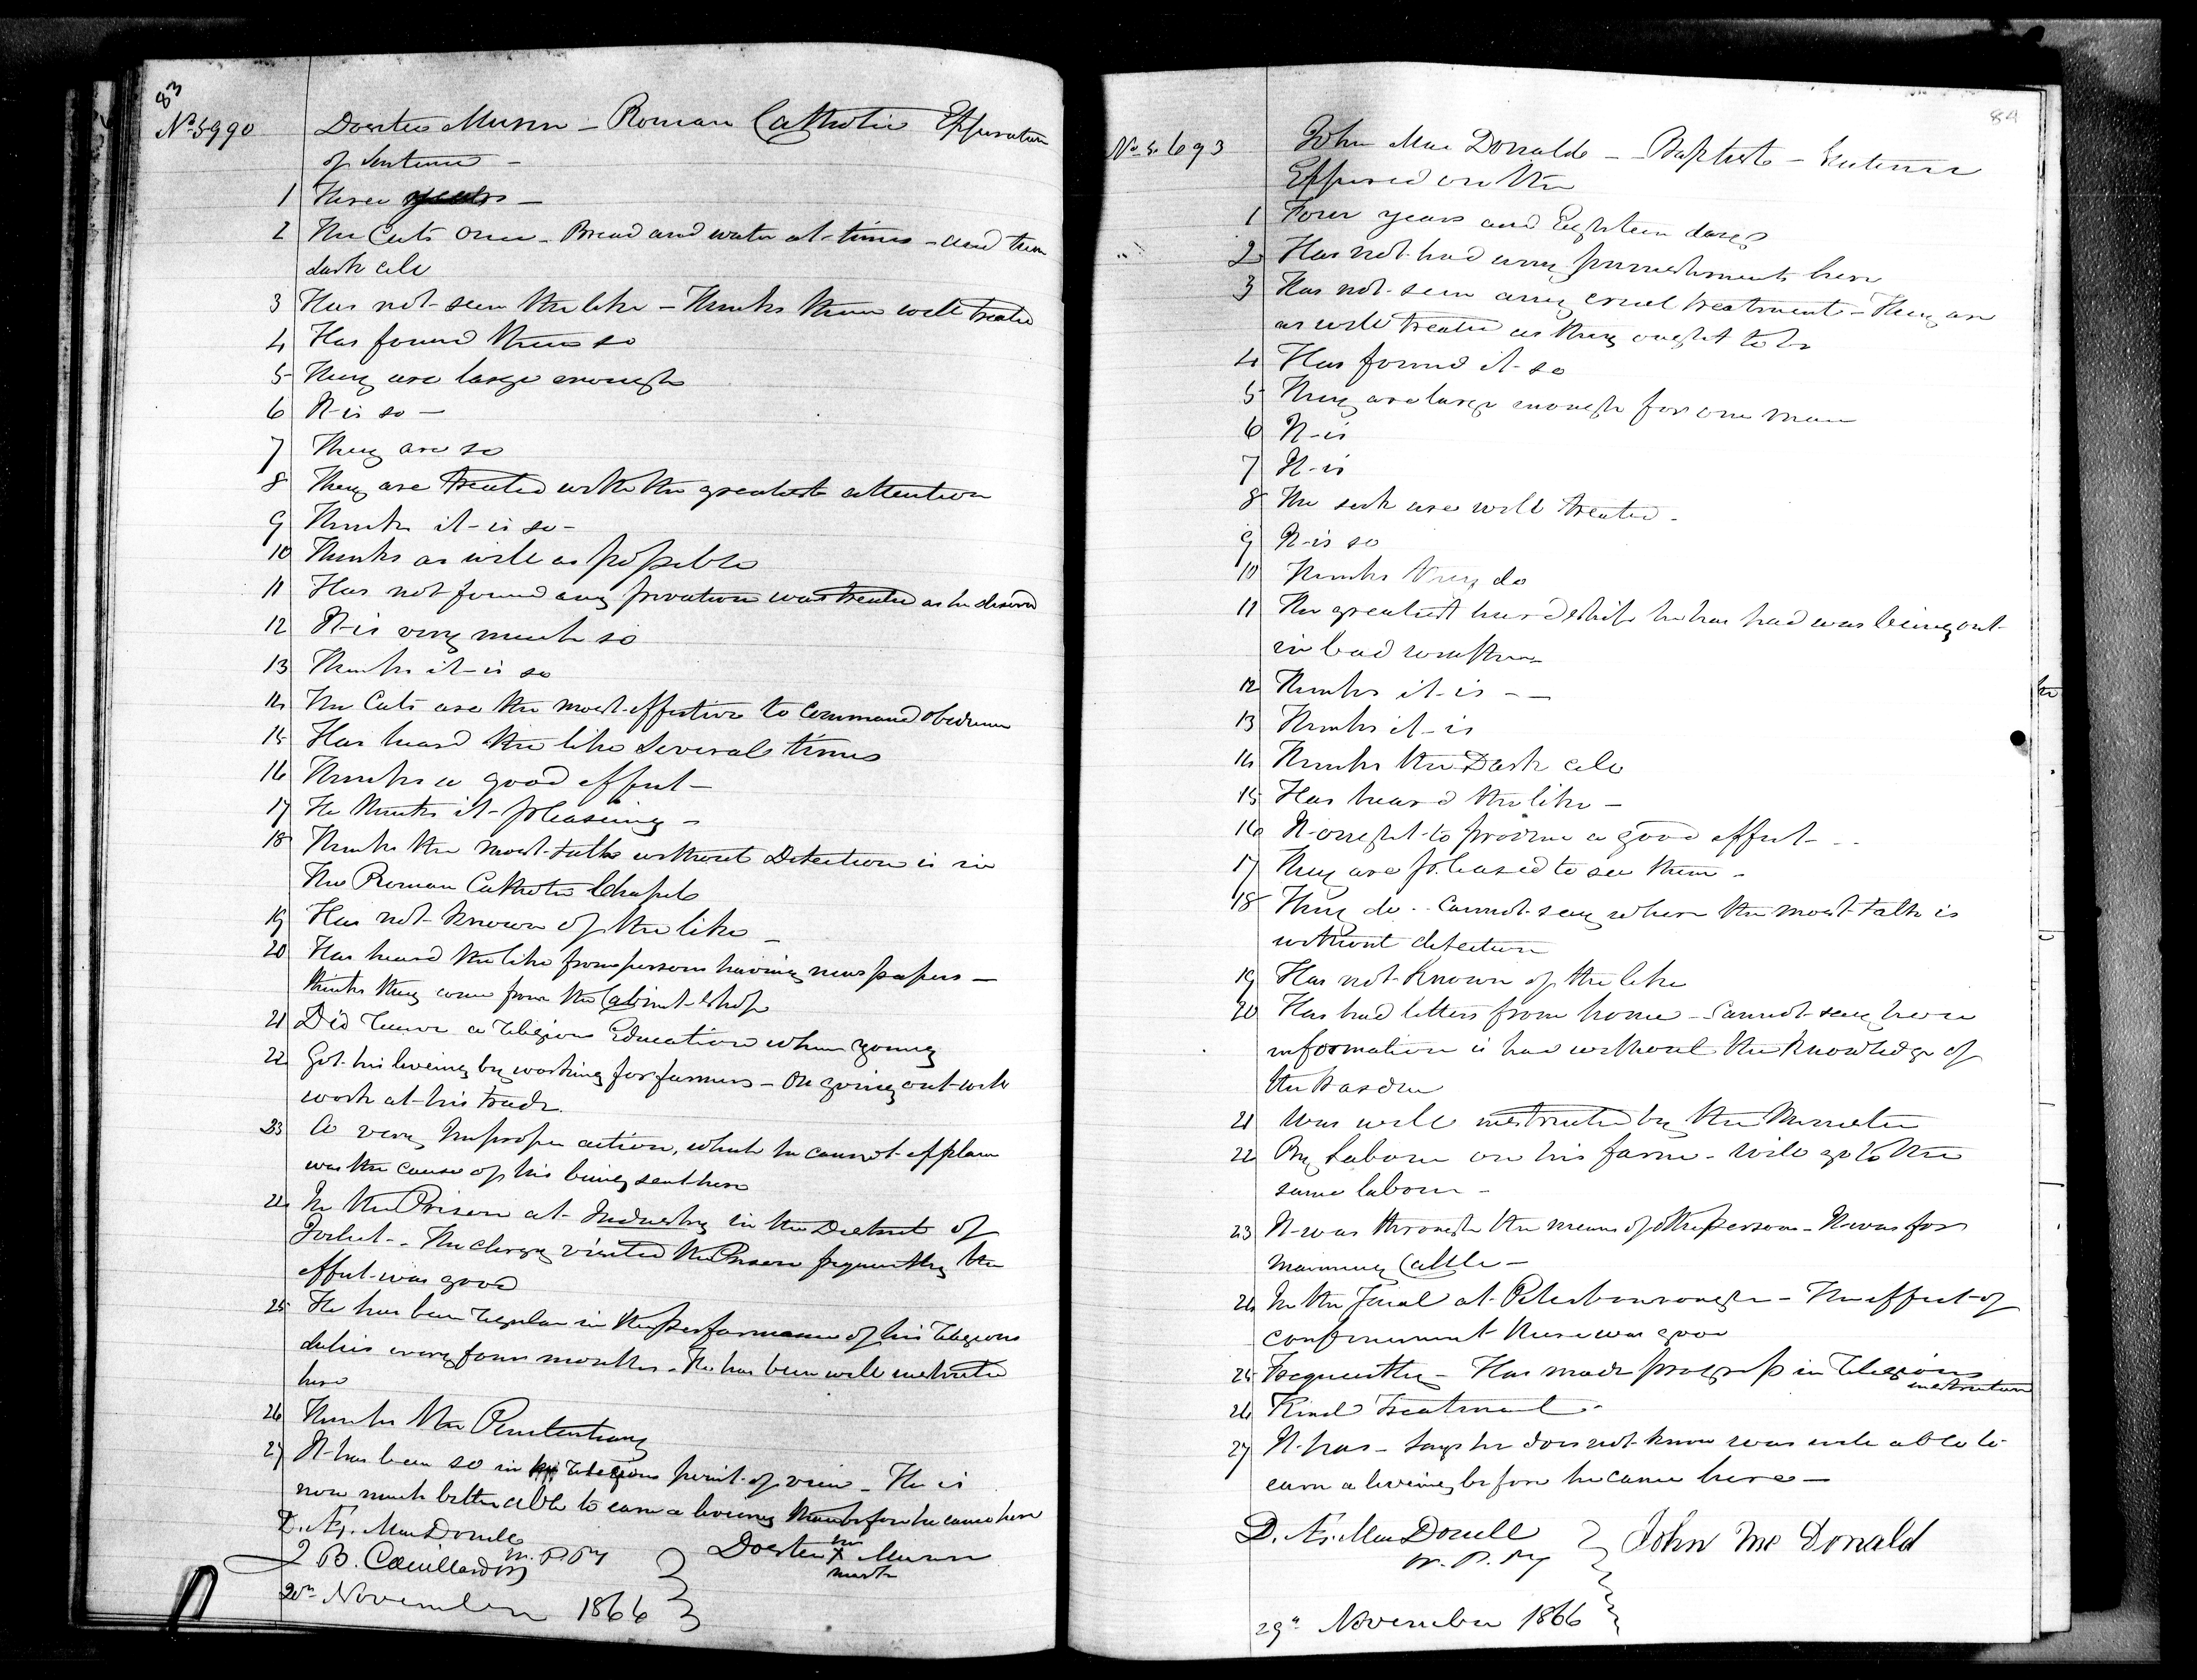 83
No 5990 Doestie Munn - Roman Catholic Expiration
of Sentence -
1 Three years -
2 The Cats once - Bread and water at times - and then
dark cell
3 Has not seen the like - Thinks them well treated
4 Has found them so
5 They are large enough
6 It is so -
7 They are so
8 They are treated with the greatest attention
9 Thinks it is so -
10 Thinks as well as possible
11 Has not found any privation was treated as he deserved
12 It is very much so
13 Thinks it is so
14 The Cats are the most effective to command obedience
15 Has heard the like Severals times
16 Thinks a good effect -
17 He thinks it pleasing -
18 Thinks the most talk without Detection is in
The Roman Catholic Chapel
19 Has not known of the like -
20 Has heard the like from persons having news papers -
thinks they come from the Cabinet Shop
21 Did receive a religious Education when young
22 Got his liveing by working for farmers - On going out will
work at his trade.
23 A very Improper action, which he cannot explain
was the cause of his being sent here
24 In the Prison at Industry in the District of
Joliet - The clergy visited the Prison frequently the
effect was good
25 He has been regular in the performance of his religious
duties every four months - He has been well instructed
here
26 Thinks the Penitentiary
27 It has been so in religious point of view - He is
now much better able to earn a liveing than before he came here
D. Æ. MacDonell
W. P. Py
20th November 1866
Doestie his X mark Munn
84
No 5693 John Mac Donald - Baptist - Sentence
Expired on the
1 Four years and Eighteen days
2 Has not had any punishment here
3 Has not seen any cruel treatment - They are
as well treated as they ought to be
4 Has found it so
5 They are large enough for one man
6 It is
7 It is
8 The sick are well treated -
9 It is so
10 Thinks they do
11 The greatest hardship he has had was being out
in bad weather
12 Thinks it is - -
13 Thinks it is
14 Thinks the Dark cell
15 Has heard the like -
16 It ought to produce a good effect - . .
17 They are pleased to see them -
18 They do - . Cannot say where the most talk is
without detection
19 Has not known of the like
20 Has had letters from home - Cannot say how
information is had without the knowledge of
the Warden
21 Was well instructed by the Minister
22 By Labour on his farm - Will go to the
same labour -
23 It was through the means of other persons - It was for
maiming Cattle -
24 In the Goal at Peterbourough - The effect of
confinement there was good
25 Frequently - Has made progress in religious
instruction
26 Kind Treatment -
27 It has - Says he does not know was well able to
earn a liveing before he came here -
D. Æ. MacDonell
W. P. Py
John Mc Donald
29th November 1866